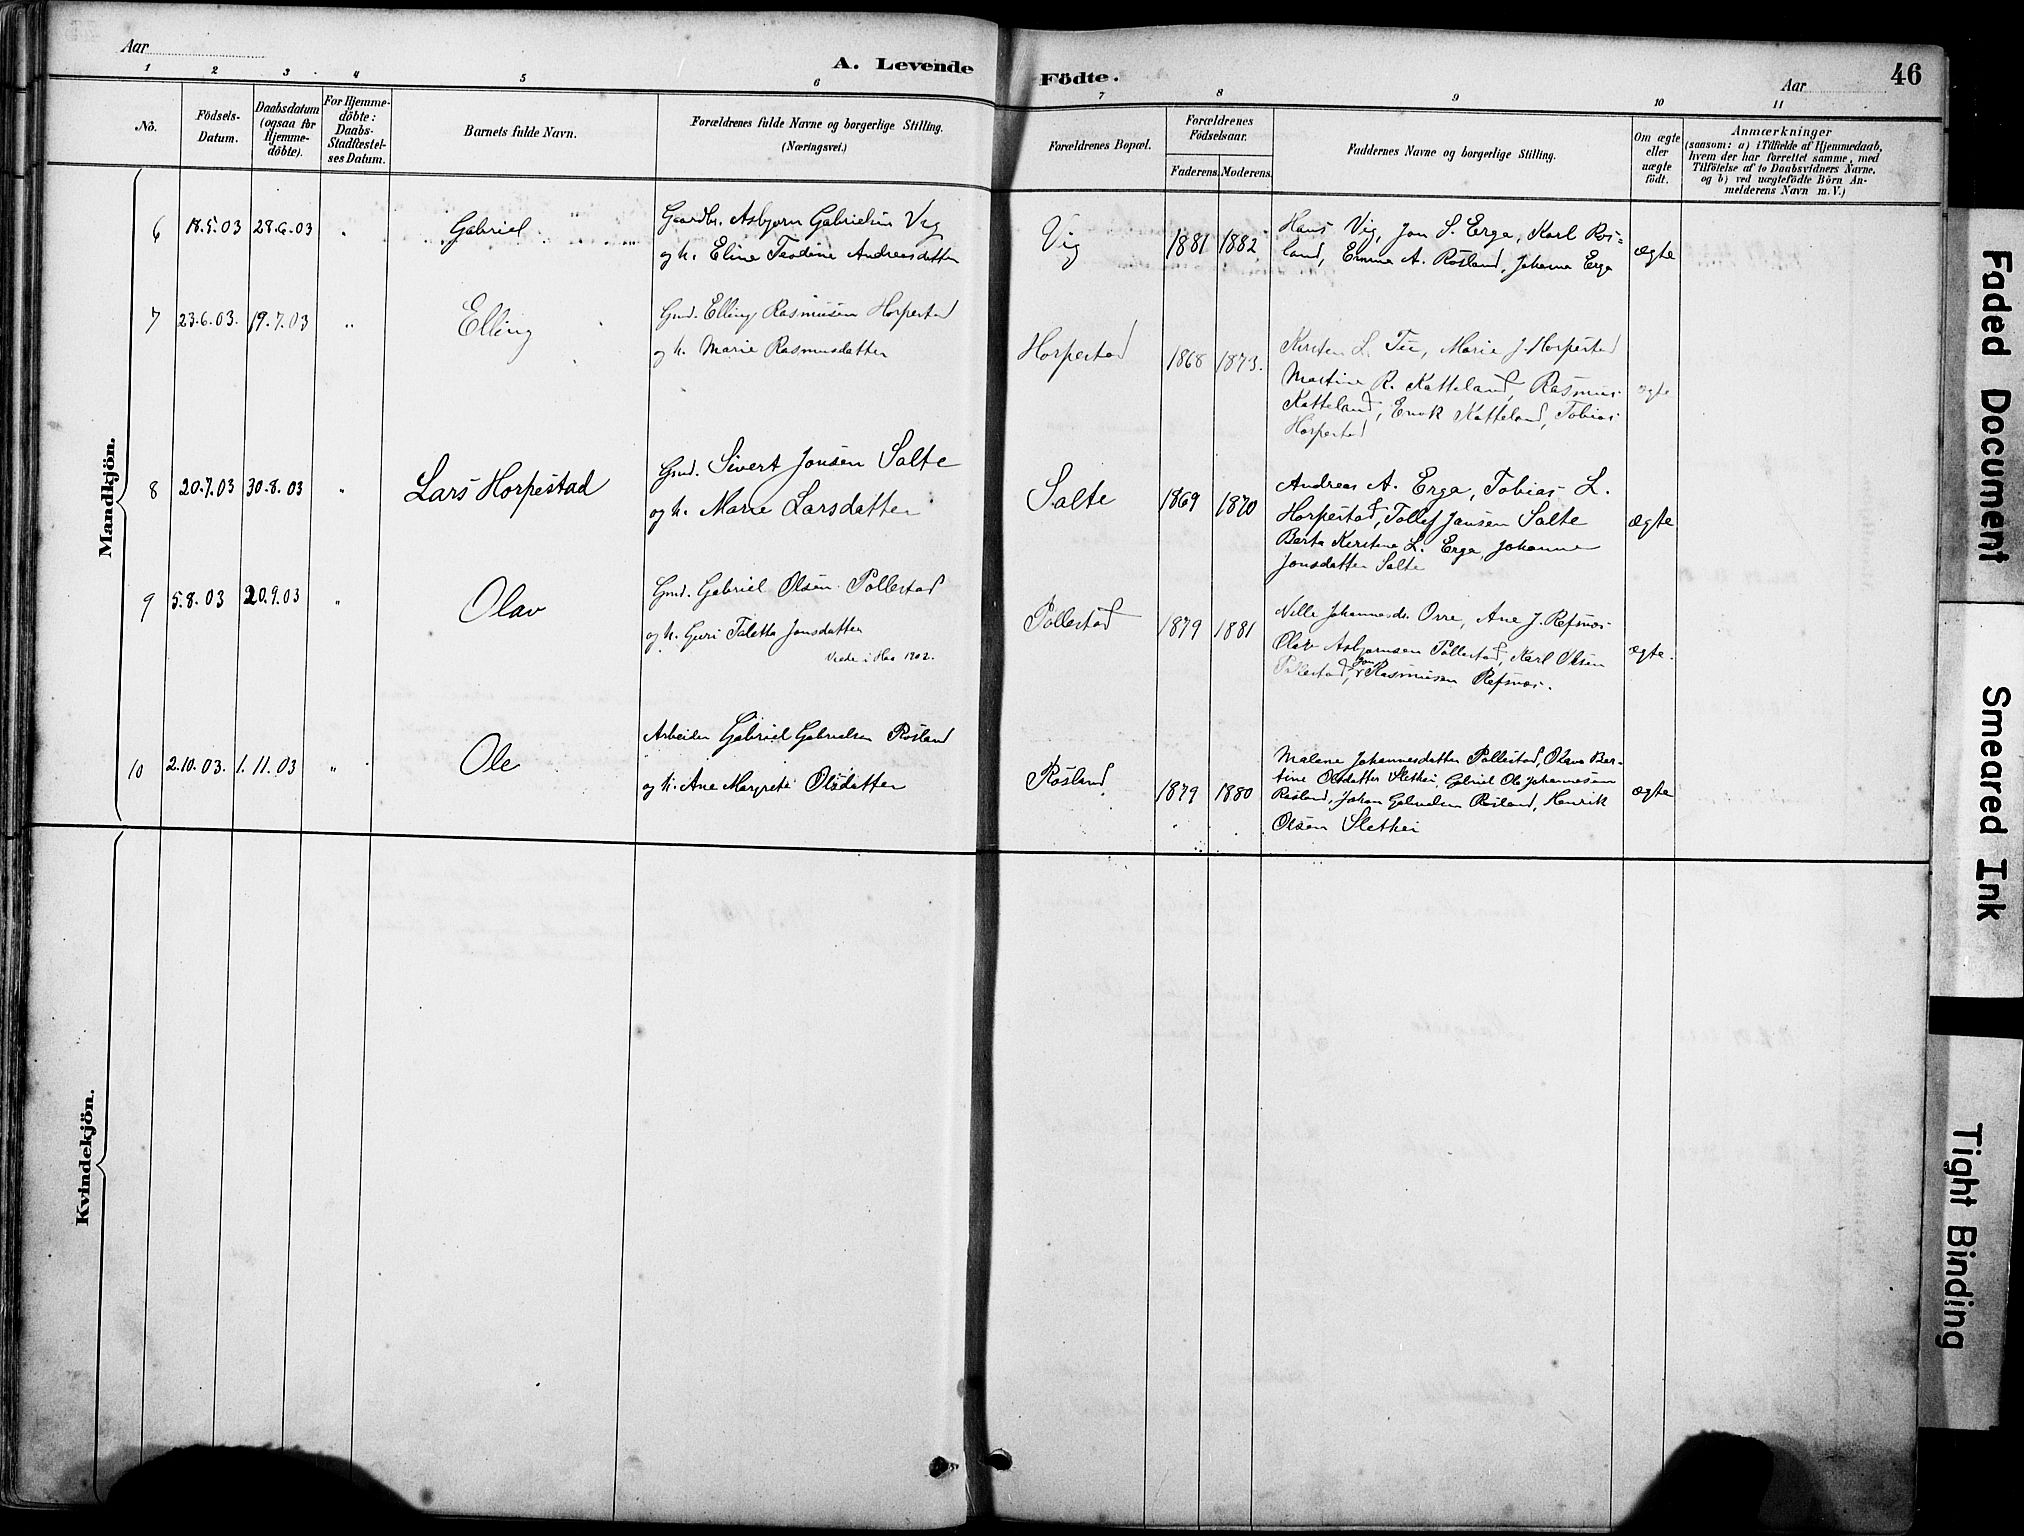 Aar
A. Levende
Födte.
Aar
46
1 2 3 4 5 6 7 8 9 10 11
No.
Födsels-
Datum.
Daabsdatum
(ogsaa for
Hjemme-
döbte).
For Hjemme-
döbte:
Daabs-
Stadfæstel-
ses Datum.
Barnets fulde Navn.
Forældrenes fulde Navne og borgerlige Stilling.
(Næringsvei.)
Forældrenes Bopæl.
Forældrenes
Födselsaar.
Faderens. Moderens.
Faddernes Navne og borgerlige Stilling.
Om ægte
eller
uægte
födt.
Anmærkninger
(saasom: a) i Tilfælde af Hjemmedaab,
hvem der har forrettet samme, med
Tilföielse af to Daabsvidners Navne,
og b) ved uægtefödte Börn An-
melderens Navn m. V.)
Mandkjön.
6 18.5.03 28.6.03 " Gabriel
Gaardbr. Asbjørn Gabrielsen Vig
og h. Eline Teodine Andreasdatter
Vig 1881 1882
Hans Vig, Jon S. Erga, Karl Ros=
land, Emma A. Rosland, Johanna Erga
ægte
7 23.6.03. 19.7.03 " Elling
Gmd. Elling Rasmusen Horpestad
og h. Marie Rasmusdatter
Horpestad 1868 1873.
Kirsten L. Tu, Marie J. Horpestad
Martine R. Katteland, Rasmus
Katteland, Enok Katteland, Tobias
Horpestad
ægte
8 20.7.03 30.8.03 " Lars Horpestad
Gmd. Sivert Jonsen Salte
og h. Marie Larsdatter
Salte 1869 1870
Andreas A. Erga, Tobias L.
Horpestad, Tollef Jansen Salte
Berta Kirstine L. Erga, Johanne
Jonsdatter Salte
ægte
9 5.8.03 20.9.03 " Olav
Gmd. Gabriel Olsen Pollestad
og h. Guri Taletta Jonsdatter
Viede i Haa 1902.
Pollestad 1879 1881
Nille Johannesdr. Orre, Ane J. Refsnæs
Olav Asbjørnsen Pollestad, Karl Olsen
Pollestad, Jon Rasmusen Refsnæs.
ægte.
10 2.10.03. 1.11.03 " Ole
Arbeider Gabriel Gabrielsen Rosland
og h. Ane Margrete Olsdatter
Rosland 1879 1880
Malene Johannesdatter Pollestad, Olava Ber-
tine Olsdatter Slethei, Gabriel Ole Johannesen
Rosland, Johan Gabrielsen Rosland, Henrik
Olsen Slethei
ægte
Kvindekjön.
Faded Document
Smeared Ink
Tight Binding